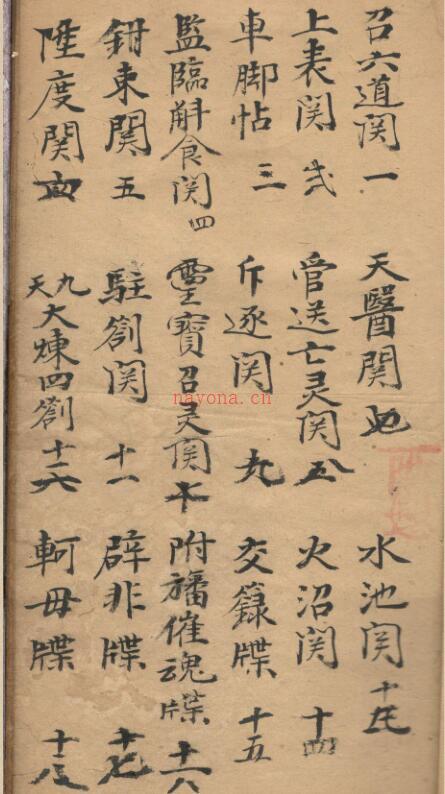 召六道関一
上表関弍
車脚帖三
監臨斛食関四
鉗束関五
陞度関
天醫関
管送亡灵関八
斥逐関九
靈寶召灵関十
駐劄関十一
九天大煉四劄
水池関
火沼関十四
交籙牒十五
附旛催魂牒
辟非牒十七
軻毋牒十八
nayona.cn